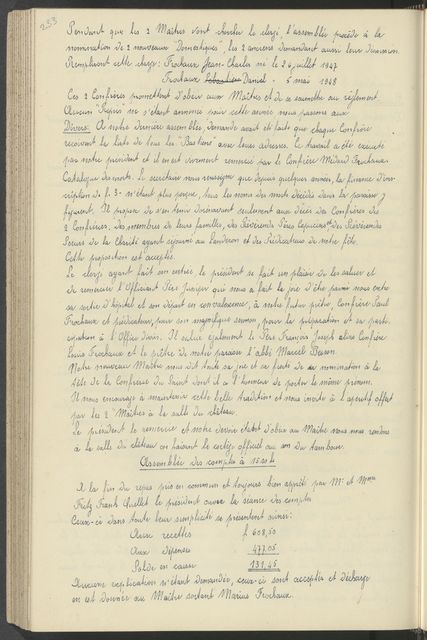 233
Pendant que les 2 Maîtres vont chercher le clergé, l'assemblée procède à la
nomination de 2 nouveaux Domestiques, les 2 anciens demandant aussi leur démission.
Remplissent cette charge: Frochaux Jean-Charles né le 24 juillet 1947
Frochaux Daniel - 5 mai 1948
Ces 2 Confrères promettent d'obéir aux Maîtres et de se soumettre au règlement.
Aucun ne s'étant annoncé pour cette année nous passons aux
Divers: A notre dernière assemblée, demande avait été faite que chaque Confrère
reçoivent la liste de tous les "Bastiens" avec leurs adresses. Ce travail a été exécuté
par notre président et il en est vivement remercié par le Confrère Médard Frochaux.
Catalogue des morts. Le secrétaire nous renseigne que depuis quelques années, la finance d'ins-
cription de f. 3.- n'étant plus perçue, tous les noms des morts décédés dans la paroisse y
figurent. Il propose de s'en tenir dorénavant seulement aux décès des Confrères des
2 Confréries, des membres de leurs familles, des Révérends Pères Capucins, des Révérendes
Sœurs de la Charité ayant séjourné au Landeron et des Prédicateurs de notre fête.
Cette proposition est acceptée.
Le clergé ayant fait son entrée le président se fait un plaisir de les saluer et
de remercier l'Officiant Père qui nous a fait la joie d'être parmi nous entre
sa sortie d'hôpital et son départ en convalescence, à notre futur prêtre, Confrère Paul
Frochaux et prédicateur, pour son magnifique sermon, pour la préparation et sa parti-
cipation à l'Office Divin. Il salue également le Père François Joseph alias Confrère
Louis Frochaux et le prêtre de notre paroisse l'abbé Marcel Besson.
Notre nouveau Maître nous dit toute sa joie et sa fierté de sa nomination à la
tête de la Confrérie du Saint dont il a l'honneur de porter le même prénom.
Il nous encourage à maintenir cette belle tradition et nous invite à l'apéritif offert
par les 2 Maîtres à la salle du château.
Le président le remercie et notre devoir étant d'obéir au Maître nous nous rendons
à la salle du château en faisant le cortège officiel au son du tambour.
Assemblée des comptes à 15.00 h
A la fin du repas pris en commun et toujours bien apprêté par Mr et Mme
Fritz Frank Quellet le président ouvre la séance des comptes
Ceux-ci dans toute leur simplicité se présentent ainsi:
Aux recettes f. 608,50
Aux dépenses 477.05
Solde en caisse 131,45
Aucune explication n'étant demandée, ceux-ci sont acceptés et décharge
en est donnée au Maître sortant Marius Frochaux.